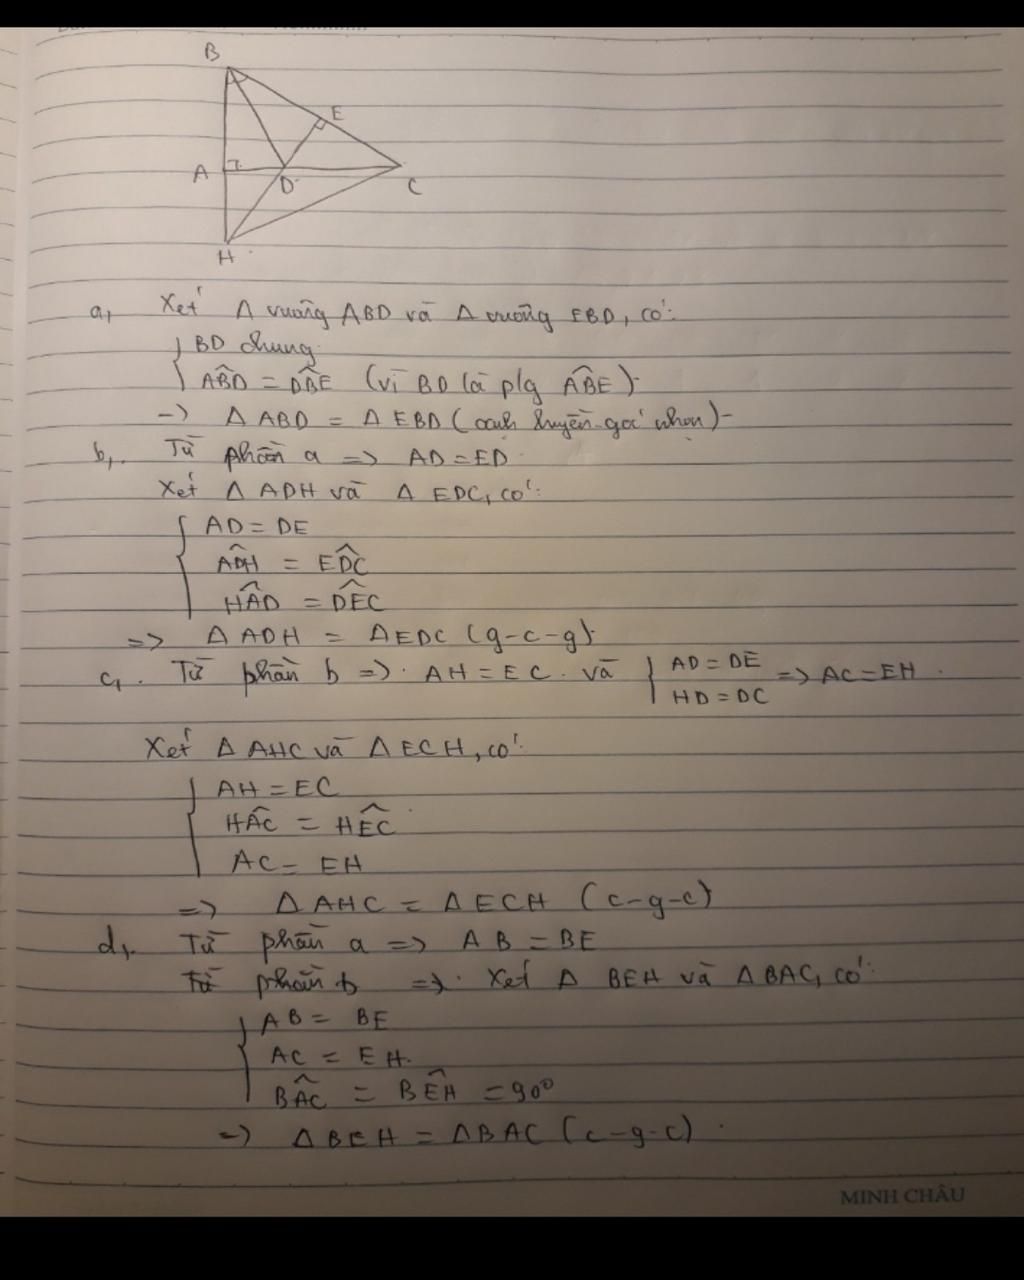 B
E
A
D
C
H
a, Xét Δ vuông ABD và Δ vuông EBD, có:
BD chung
ABD̂ = DBÊ (vì BD là p/g ABÊ).
-> Δ ABD = Δ EBD (cạnh huyền-góc nhọn)
b, Từ phần a => AD = ED
Xét Δ ADH và Δ EDC, có:
AD = DE
ADĤ = EDĈ
HAD̂ = DEĈ
=> Δ ADH = Δ EDC (g-c-g)
c, Từ phần b => AH = EC và { AD = DE => AC = EH
HD = DC
Xét Δ AHC và Δ ECH, có:
AH = EC
HAĈ = HEĈ
AC = EH
=> Δ AHC = Δ ECH (c-g-c)
d, Từ phần a => AB = BE
Từ phần b => Xét Δ BEH và Δ BAC, có:
AB = BE
AC = EH
BAĈ = BEĤ = 90°
=> Δ BEH = Δ BAC (c-g-c)
MINH CHÂU